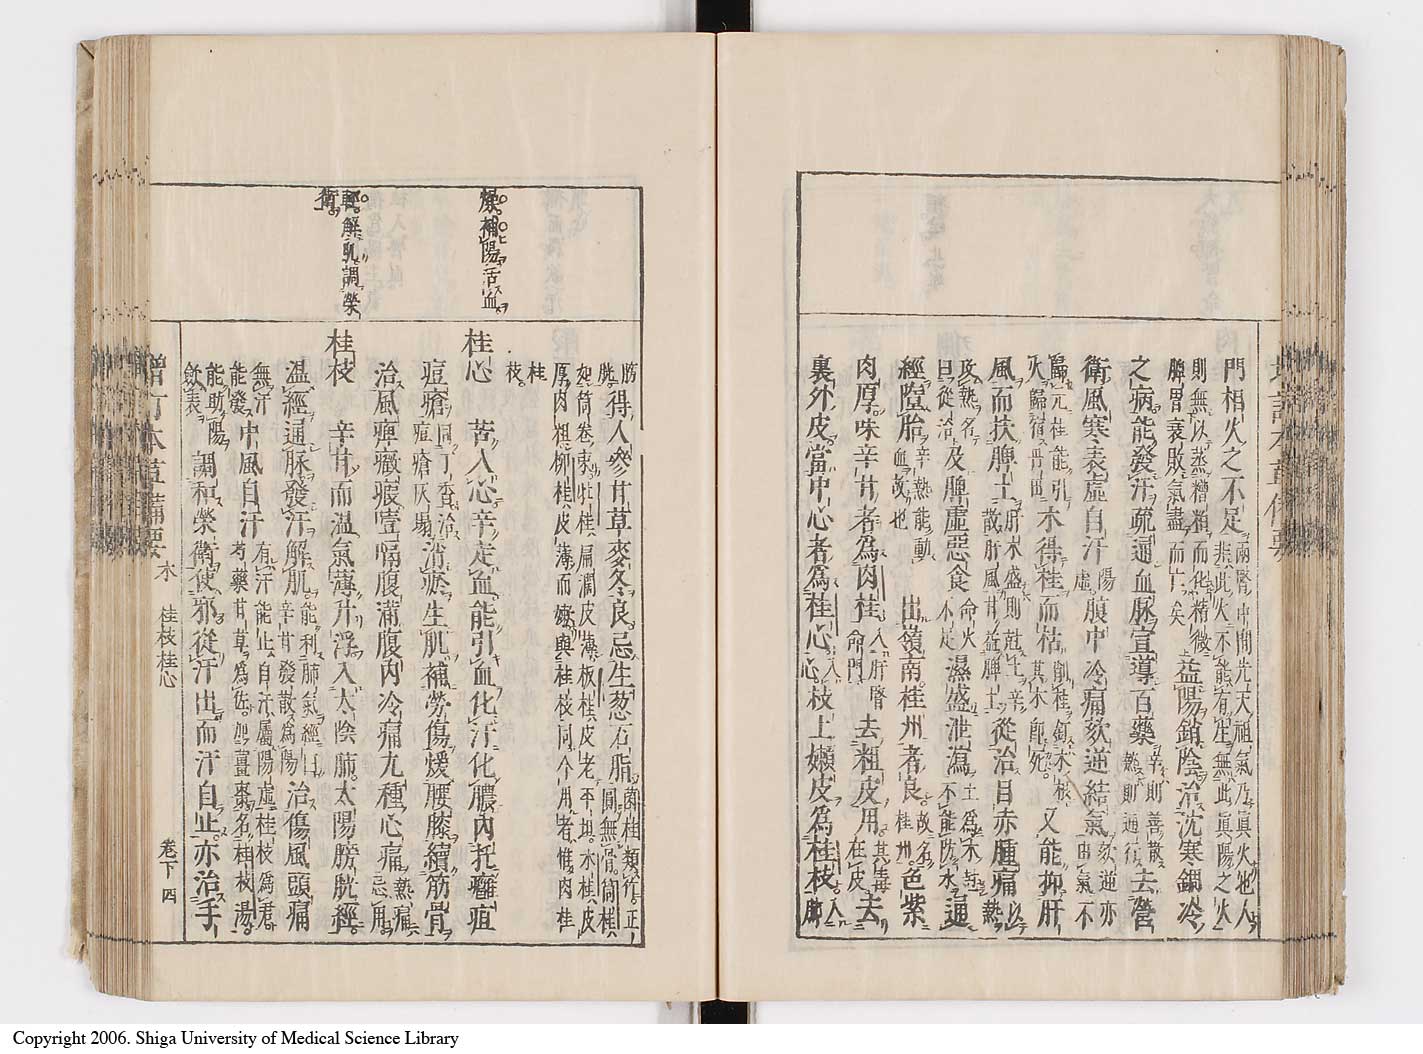 門相火之不足兩腎中間先天祖氣乃眞火也人非此火不能有生無此眞陽之火
則無以蒸糟粕而化精微脾胃衰敗氣盡而亡矣益陽銷陰治沈寒錮冷
之病能發汗疏通血脉宣導百藥辛則善散熱則通行去營
衛風寒表虛自汗陽虛腹中冷痛欬逆結氣欬逆亦由氣不
歸元桂能引火歸宿丹田木得桂而枯削桂釘木根其木卽死又能抑肝
風而扶脾土肝木盛則尅土辛散肝風甘益脾土從治目赤腫痛以熱
攻熱名曰從治及脾虛惡食命火不足濕盛泄瀉土爲木尅不能防水通
經墮胎辛熱能動血故也出嶺南桂州者良故名桂州色紫
肉厚味辛甘者爲肉桂入肝腎命門去粗皮用其毒在皮去
裏外皮當中心者爲桂心入心枝上嫩皮爲桂枝入肺
膀胱得人參甘草麥冬良忌生葱石脂菌桂類竹正圓無骨筒桂
如筒卷束牡桂扁濶皮薄板桂皮老平坦木桂皮厚肉粗柳桂皮薄而嫩與桂枝同今用者惟肉桂
桂枝
燥補陽活血
桂心 苦入心辛走血能引血化汗化膿內托癰疽
痘瘡同丁香治痘瘡灰塌消瘀生肌補勞傷煖腰膝續筋骨
治風痺癥瘕噎膈腹滿腹內冷痛九種心痛熱痛忌用
輕解肌調榮衛
桂枝 辛甘而溫氣薄升浮入太陰肺太陽膀胱經
溫經通脉發汗解肌能利肺氣經曰辛甘發散爲陽治傷風頭痛
無汗能發中風自汗有汗能止自汗屬陽虛桂枝爲君芍藥甘草爲佐加薑棗名桂枝湯
能助陽歛表調和榮衛使邪從汗出而汗自止亦治手
增訂本草備要 木 桂枝桂心 卷下 四